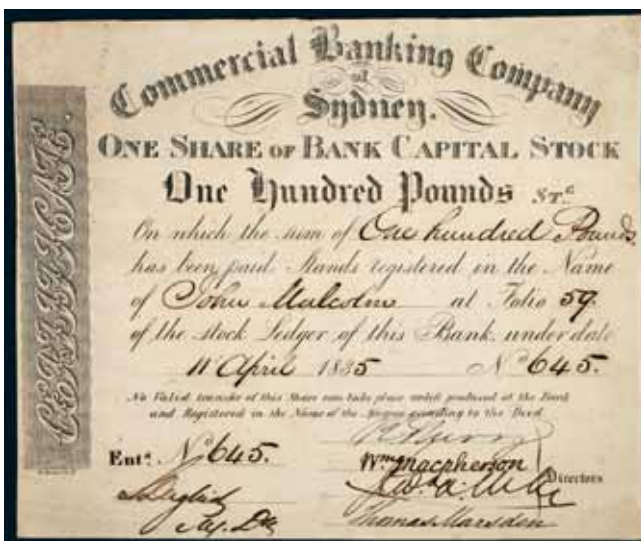 Commercial Banking Company
of
Sydney.
ONE SHARE OF BANK CAPITAL STOCK
One Hundred Pounds St.g
On which the sum of One hundred Pounds
has been paid. Stands registered in the Name
of John Malcolm at Folio 59.
of the Stock Ledger of this Bank, under date
11 April 1835 No 645.
No Valid transfer of this Share can take place until produced at the Bank
and Registered in the Name of the Assignee according to the Deed
Entd. No 645.
Wm Macpherson
Directors
Thomas Marsden
CERTIFICATE.